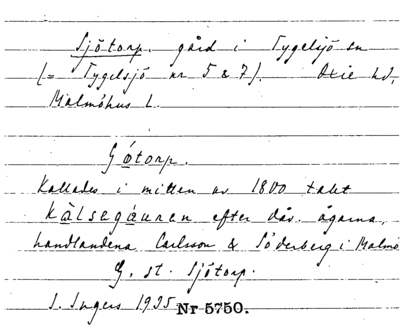 Sjötorp, gård i Tygelsjö sn
(= Tygelsjö nr 5 & 7). Oxie hd,
Malmöhus l.
Götorp.
Kallades i mitten av 1800 talet
kàlsegáuren efter dåv. ägarna,
handlandena Carlsson & Söderberg i Malmö
G. st. Sjötorp.
I. Ingers 1935 Nr 5750.